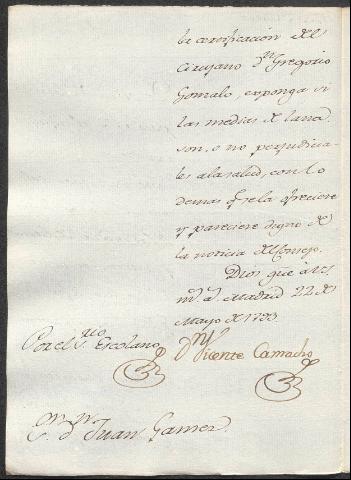 la certificación del
Cirujano Dn Gregorio
Gonzalo, exponga si
las medias de lana
son, o no perjudicia-
les a la salud, con lo
demas qe se la ofreciere
y pareciere digno de
la noticia del Consejo.
Dios gue à Vs
ms as Madrid 22 de
Mayo de 1793.
Por el Srio Escolano
Dn Vicente Camacho
Dn Juan Gamez.